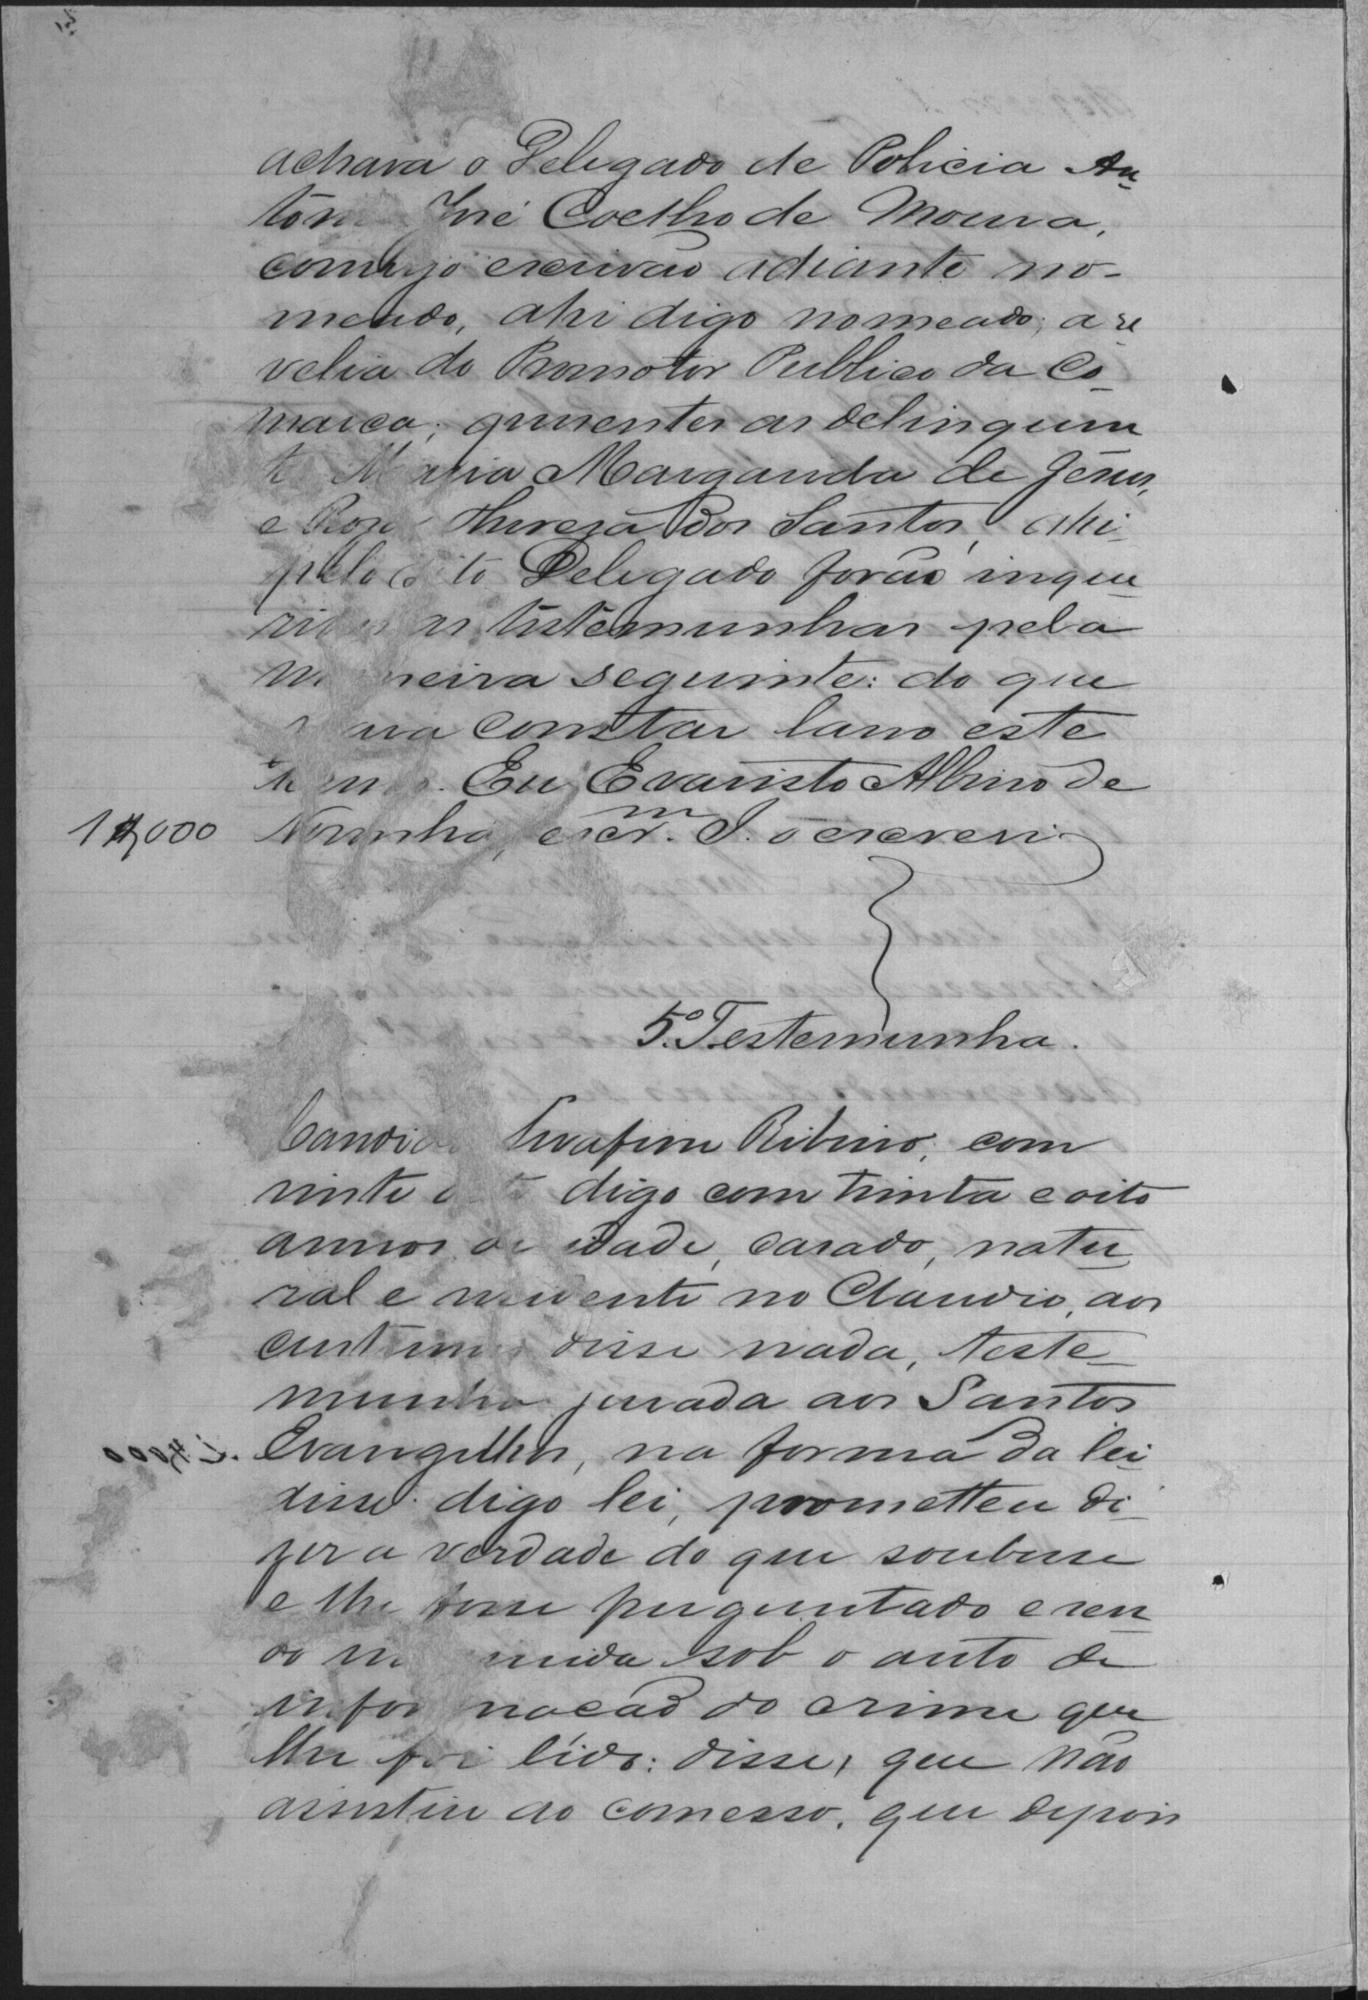 achava o Delegado de Policia An-
tôn José Coelho de Moura,
comigo escrivão adiante no-
meado, ahi digo nomeado; a re
velia do Promotor Publico da Co-
marca; presentes as delinquen
te Maria Margarida de Jesus,
e Rosa Thereza dos Santos, ahi
pelo dito Delegado forão inque-
ridas as testemunhas pela
maneira seguinte: do que
para constar lavro este
termo. Eu Evaristo Albino de
1$000 Noronha, escr.m I. o escrevi
5.º Testemunha.
Candido Serafim Ribeiro; com
vinte digo com trinta e oito
annos de idade, casado, natu
ral e morador no Claudio, aos
custumes disse nada, teste-
munha jurada aos Santos
Evangelhos, na forma da lei
disse digo lei, prometteu di-
zer a verdade do que soubesse
e lhe fosse perguntado e sen
do inquirida sob o auto de
informação do crime que
lhe foi lido: disse, que não
assistiu ao comesso, que depois